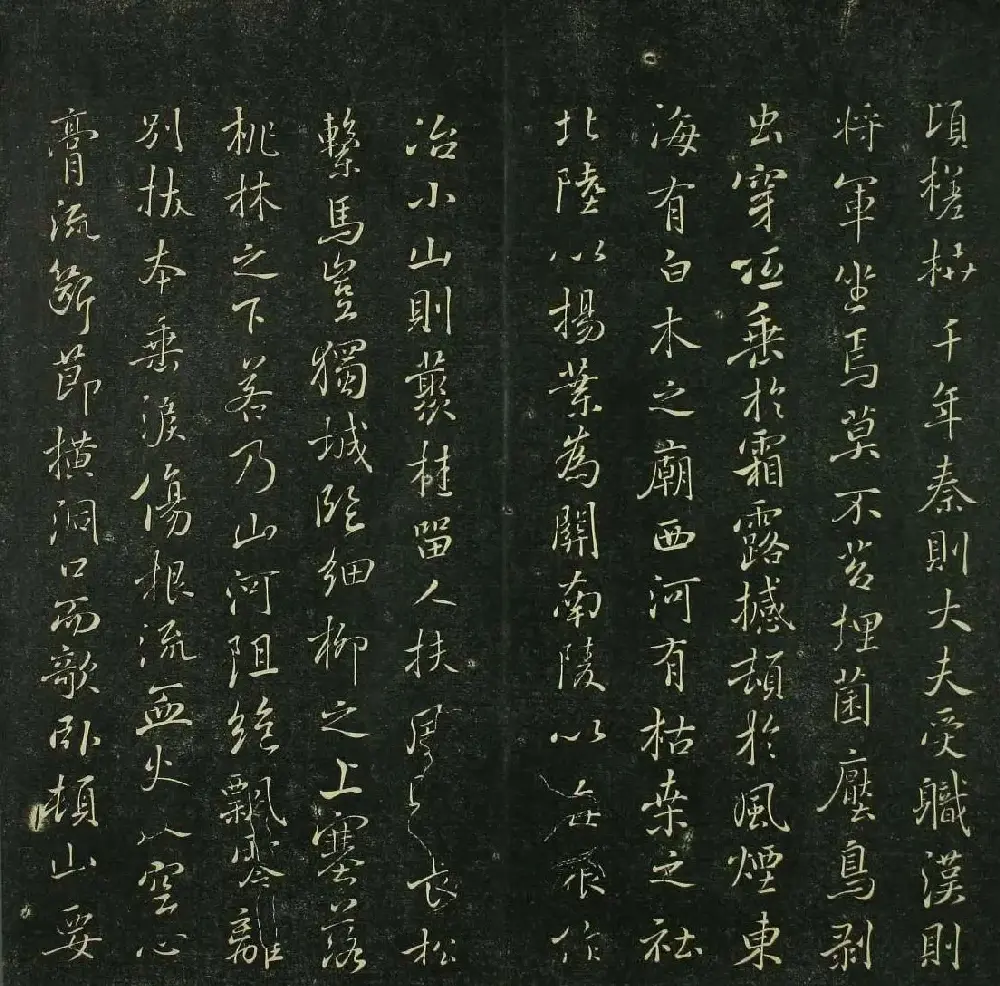 頃槎枿千年秦則大夫受職漢則
將軍坐焉莫不苔埋菌壓鳥剥
虫穿低垂於霜露撼頓於風煙東
海有白木之廟西河有枯桒之社
北陸以揚葉為關南陵以梅根作
冶小山則叢桂留人扶風長松
繫馬豈獨城臨細柳之上塞落
桃林之下若乃山河阻絶飄零離
别拔本垂淚傷根流血火入空心
膏流斷節橫洞口而欹卧頓山要